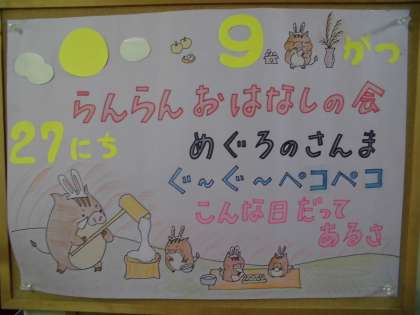 9がつ
27にち
らんらんおはなしの会
めぐろのさんま
ぐ～ぐ～ペコペコ
こんな日だって
あるさ